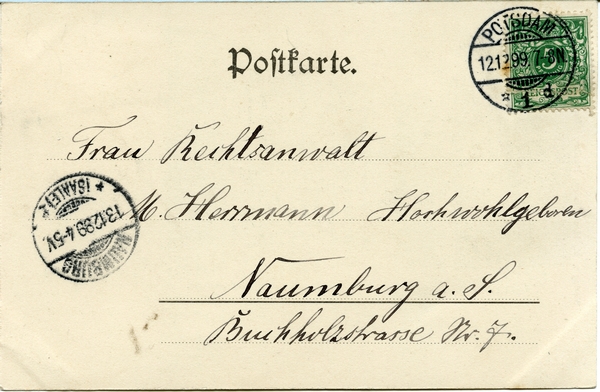 POTSDAM
12.12.99. 7-8N.
* 1 d
REICHSPOST
Postkarte.
Frau Rechtsanwalt
M. Herrmann Hochwohlgeboren
Naumburg a. S.
Buchholzstrasse Nr. 7.
NAUMBURG
13.12.99. 4-5V.
* (SAALE) *